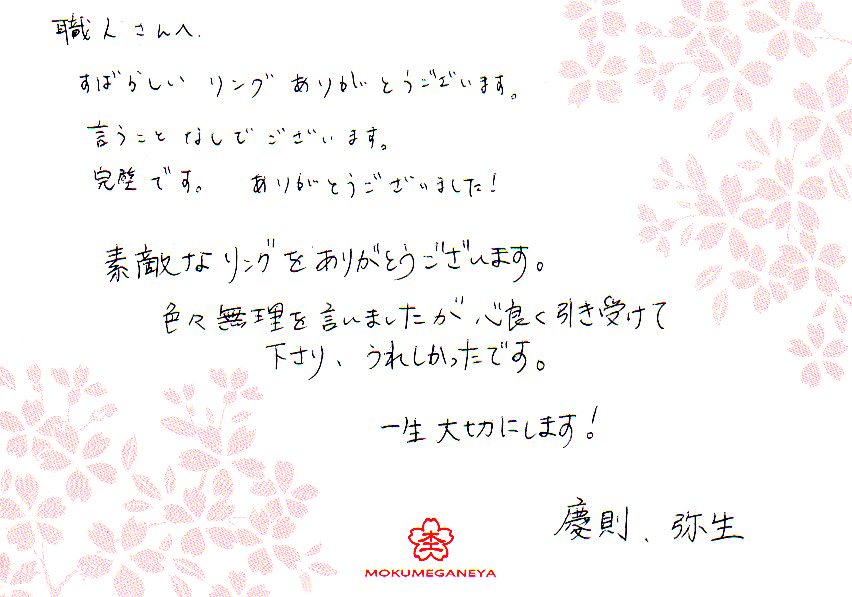 職人さんへ.
すばらしい リング ありがとうございます。
言うことなしでございます。
完璧です。 ありがとうございました!
素敵なリングをありがとうございます。
色々無理を言いましたが心良く引き受けて
下さり、うれしかったです。
一生大切にします!
慶則、弥生
MOKUMEGANEYA